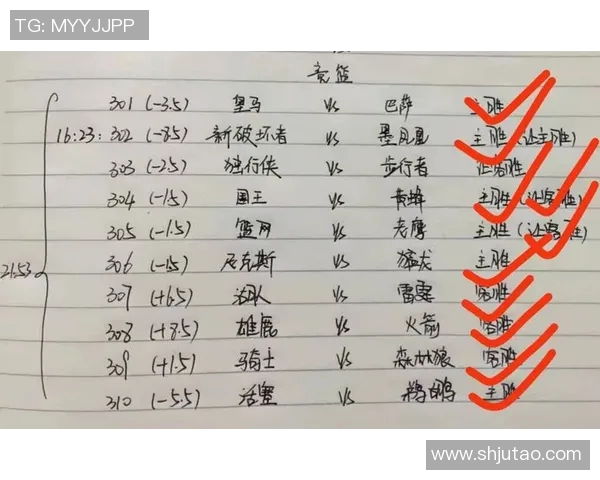 TG: MYYJJPP
竞篮
301 (-3.5) 皇马 VS 巴萨 主胜
16:23: 302 (-8.5) 新破坏者 VS 墨尔 主胜 (让主胜)
303 (-2.5) 独行侠 VS 步行者 让客胜
304 (-1.5) 国王 VS 黄蜂 主胜 (让客胜)
305 (-1.5) 篮网 VS 老鹰 主胜 (让客胜)
306 (-1.5) 尼克斯 VS 猛龙 主胜
21:53
307 (+6.5) VS 雷霆 客胜
308 (+8.5) 雄鹿 VS 火箭 客胜
309 (+1.5) 马奇士 VS 森林狼 客胜
310 (-5.5) 活塞 VS 鹈鹕 主胜
www.shjutao.com